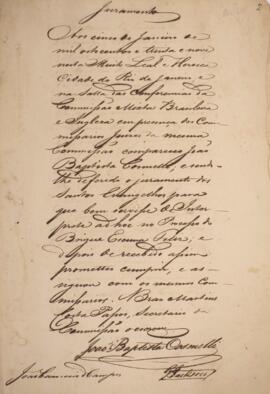 Juramento
Aos cinco de Janeiro de
mil oitocentos e trinta e nove
nesta Muito Leal e Heroica
Cidade do Rio de Janeiro e
na Salla das Conferencias da
Commissão Mixta Brasileira
e Ingleza em presença dos Com
missarios Juizes da mesma
Commissão compareceo João
Baptista Cosmelli, e sendo
lhe deferido o juramento dos
Santos Evangelhos para
que bem servisse de Inter
prete ad hoc no Processo do
Brigue Escuna Feliz, e
depois de recebido assim
prometteo cumprir, e as
signou com os mesmos Com
missarios. Braz Martins
Costa Passos, Secretario da
Commissão o escrevi
João Baptista Cosmelli
João Carneiro de Campos